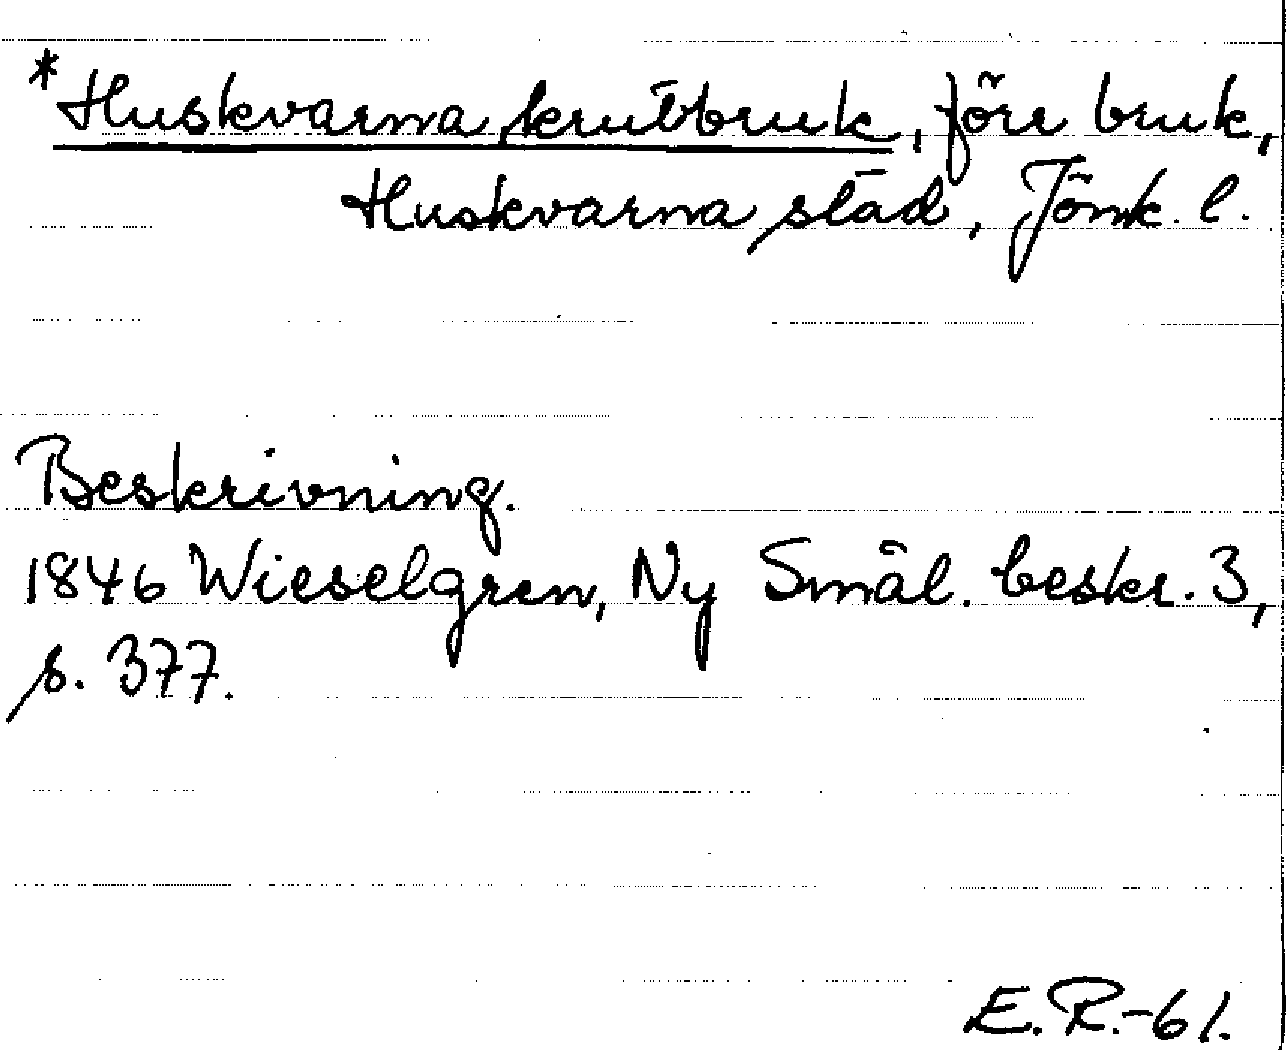 *Huskvarna krutbruk, förr bruk,
Huskvarna stad, Jönk. l.
Beskrivning.
1846 Wieselgren, Ny Smål. beskr. 3,
s. 377.
E.R.-61.